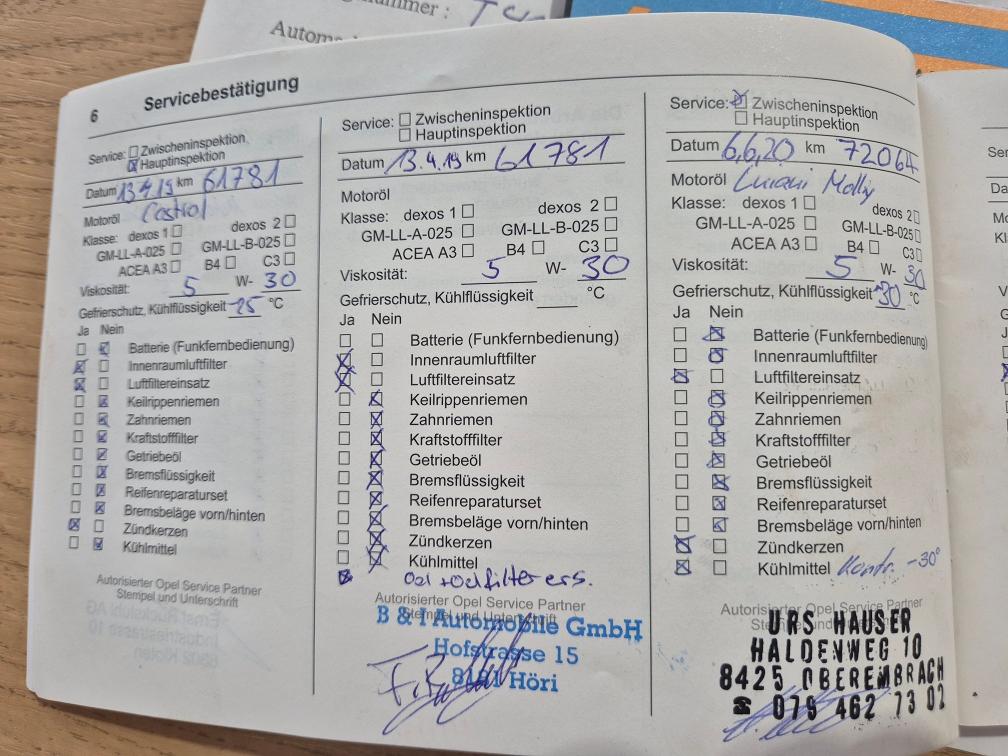 nummer :
Automo
6 Servicebestätigung
Service: Zwischeninspektion
Hauptinspektion
Datum 13.4.19 km 61781
Motoröl Castrol
Klasse: dexos 1 dexos 2
GM-LL-A-025 GM-LL-B-025
ACEA A3 B4 C3
Viskosität: 5 W- 30
Gefrierschutz, Kühlflüssigkeit -25 °C
Ja Nein
Batterie (Funkfernbedienung)
Innenraumluftfilter
Luftfiltereinsatz
Keilrippenriemen
Zahnriemen
Kraftstofffilter
Getriebeöl
Bremsflüssigkeit
Reifenreparaturset
Bremsbeläge vorn/hinten
Zündkerzen
Kühlmittel
Autorisierter Opel Service Partner
Stempel und Unterschrift
Service: Zwischeninspektion
Hauptinspektion
Datum 13.4.19 km 61781
Motoröl
Klasse: dexos 1 dexos 2
GM-LL-A-025 GM-LL-B-025
ACEA A3 B4 C3
Viskosität: 5 W- 30
Gefrierschutz, Kühlflüssigkeit °C
Ja Nein
Batterie (Funkfernbedienung)
Innenraumluftfilter
Luftfiltereinsatz
Keilrippenriemen
Zahnriemen
Kraftstofffilter
Getriebeöl
Bremsflüssigkeit
Reifenreparaturset
Bremsbeläge vorn/hinten
Zündkerzen
Kühlmittel
Oel + oelfilter ers.
Autorisierter Opel Service Partner
Stempel und Unterschrift
B & I Automobile GmbH
Hofstrasse 15
8181 Höri
Service: Zwischeninspektion
Hauptinspektion
Datum 6.6.20 km 72064
Motoröl
Klasse: dexos 1 dexos 2
GM-LL-A-025 GM-LL-B-025
ACEA A3 B4 C3
Viskosität: 5 W- 30
Gefrierschutz, Kühlflüssigkeit -30 °C
Ja Nein
Batterie (Funkfernbedienung)
Innenraumluftfilter
Luftfiltereinsatz
Keilrippenriemen
Zahnriemen
Kraftstofffilter
Getriebeöl
Bremsflüssigkeit
Reifenreparaturset
Bremsbeläge vorn/hinten
Zündkerzen
Kühlmittel Kontr. -30°
Autorisierter Opel Service Partner
URS HAUSER
HALDENWEG 10
8425 OBEREMBRACH
☎ 079 462 73 02